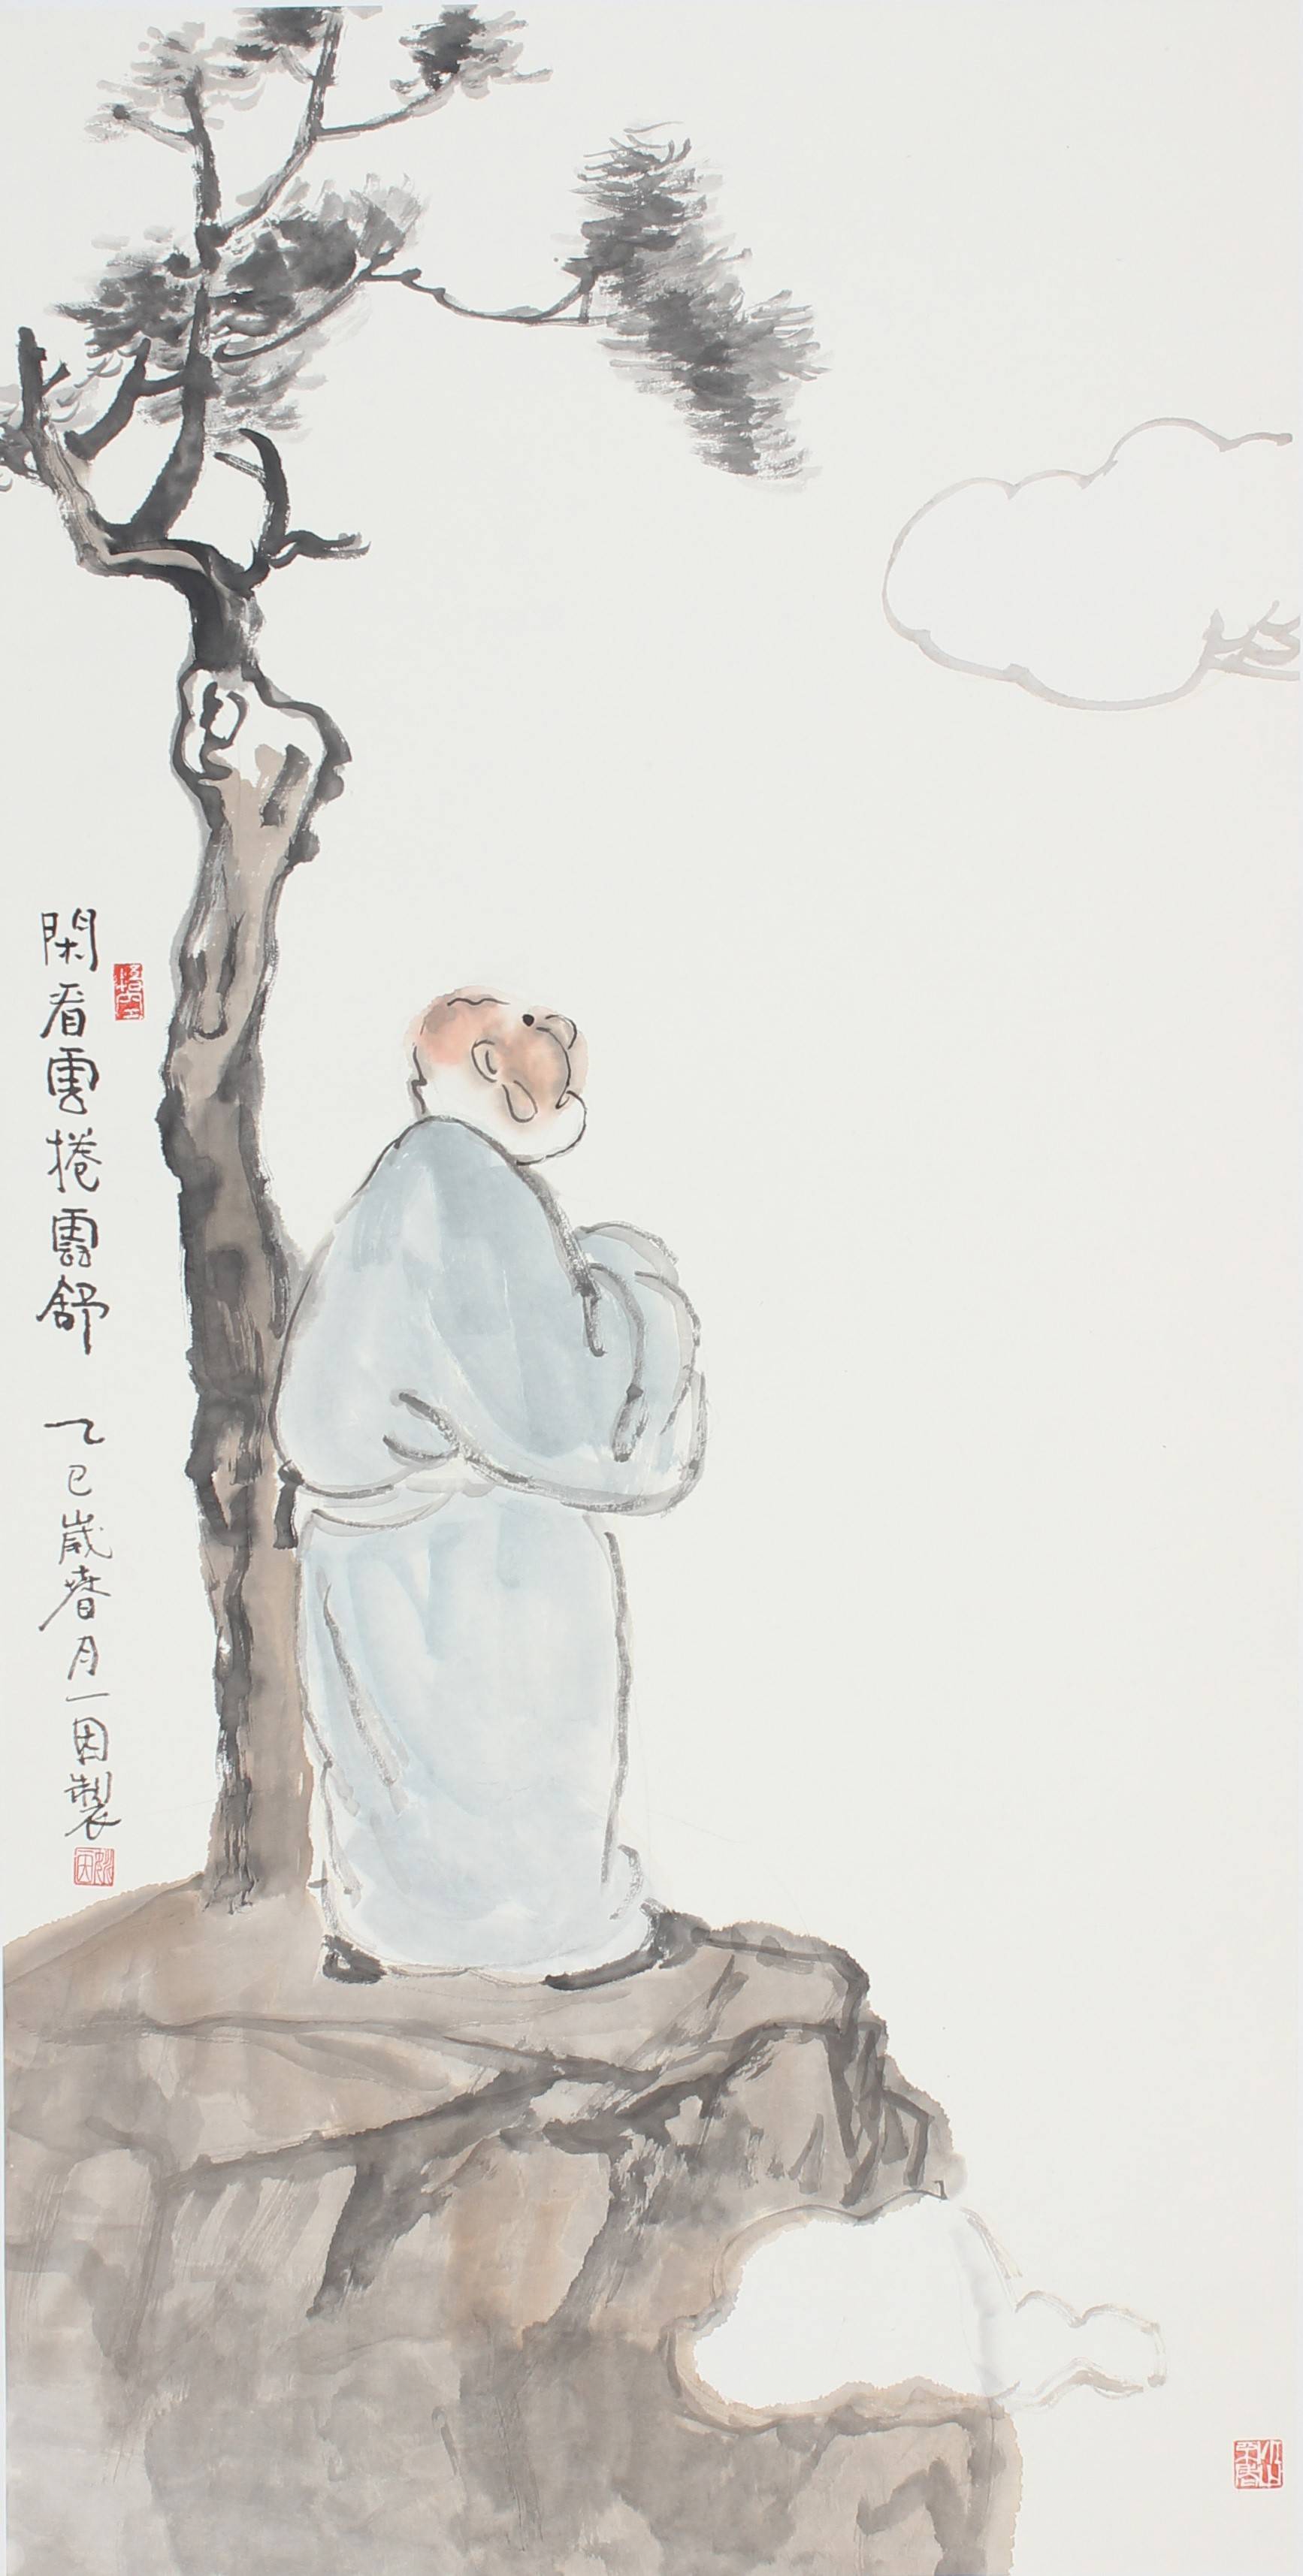 閑看雲捲雲舒 乙巳歲春月一因製